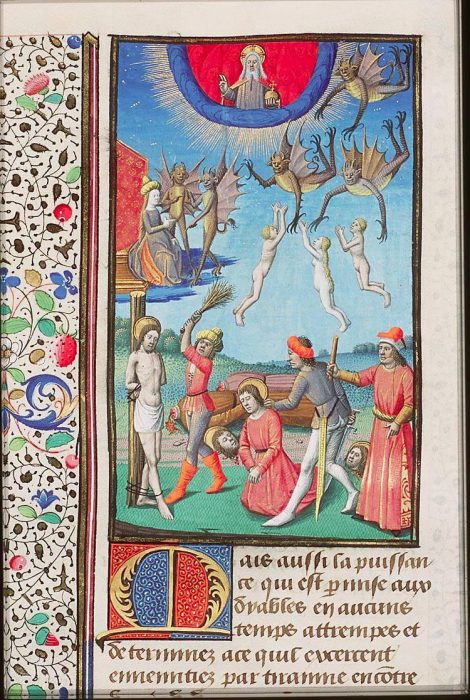 Mais aussi la puissan
ce qui est ꝑmise aux
dyables en aucuns
temps attrempes et
determinez ace quilz exercent
ennemitiez par tirannie encõtre